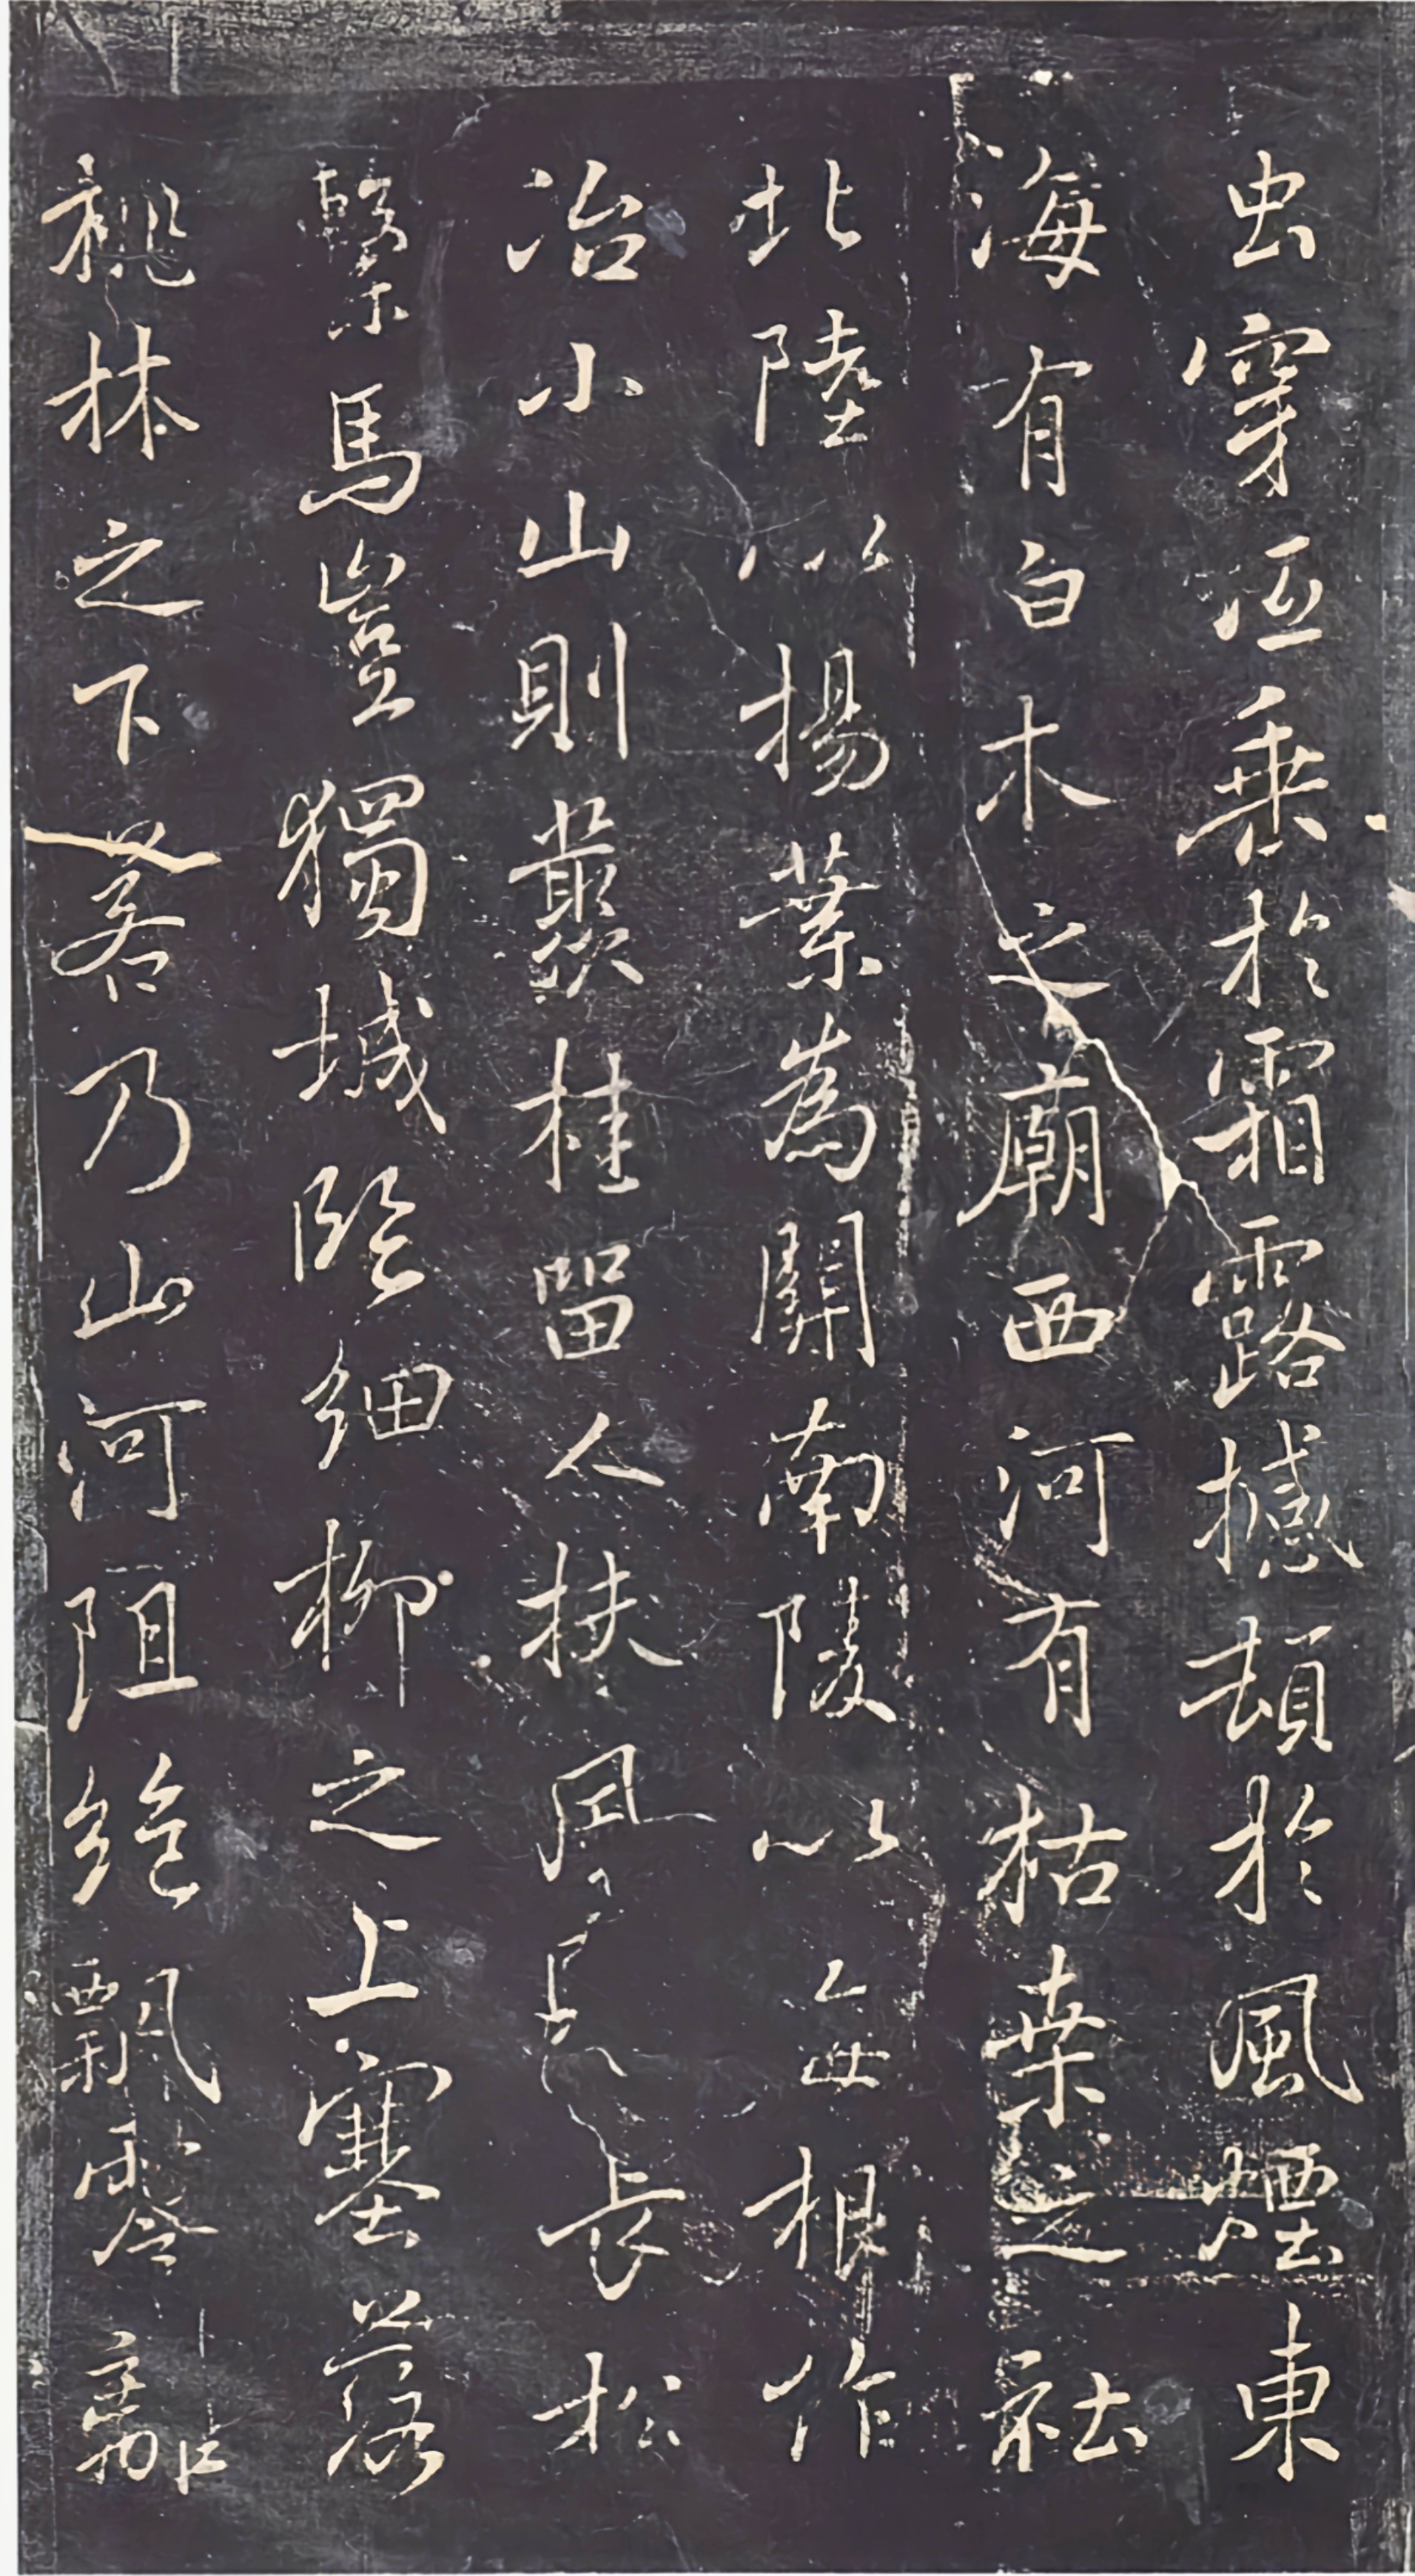 虫穿低垂於霜露撼頓於風煙東
海有白木之廟西河有枯桑之社
北陸以揚葉為關南陵以每根作
冶小山則叢桂留人扶風長松
繫馬豈獨城臨細柳之上塞落
桃林之下若乃山河阻絕飄零離